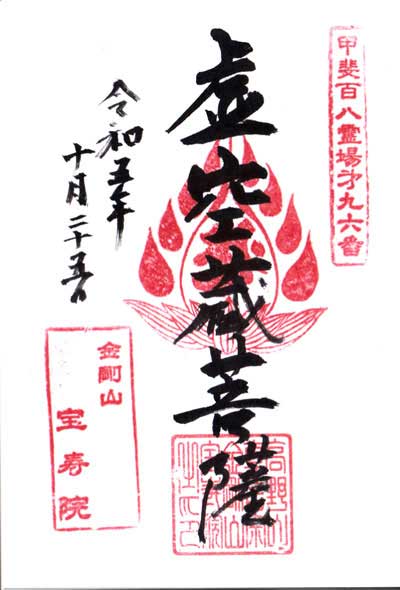 甲斐百八霊場才九六番
虚空蔵菩薩
令和五年
十月二十五日
金剛山
宝寿院